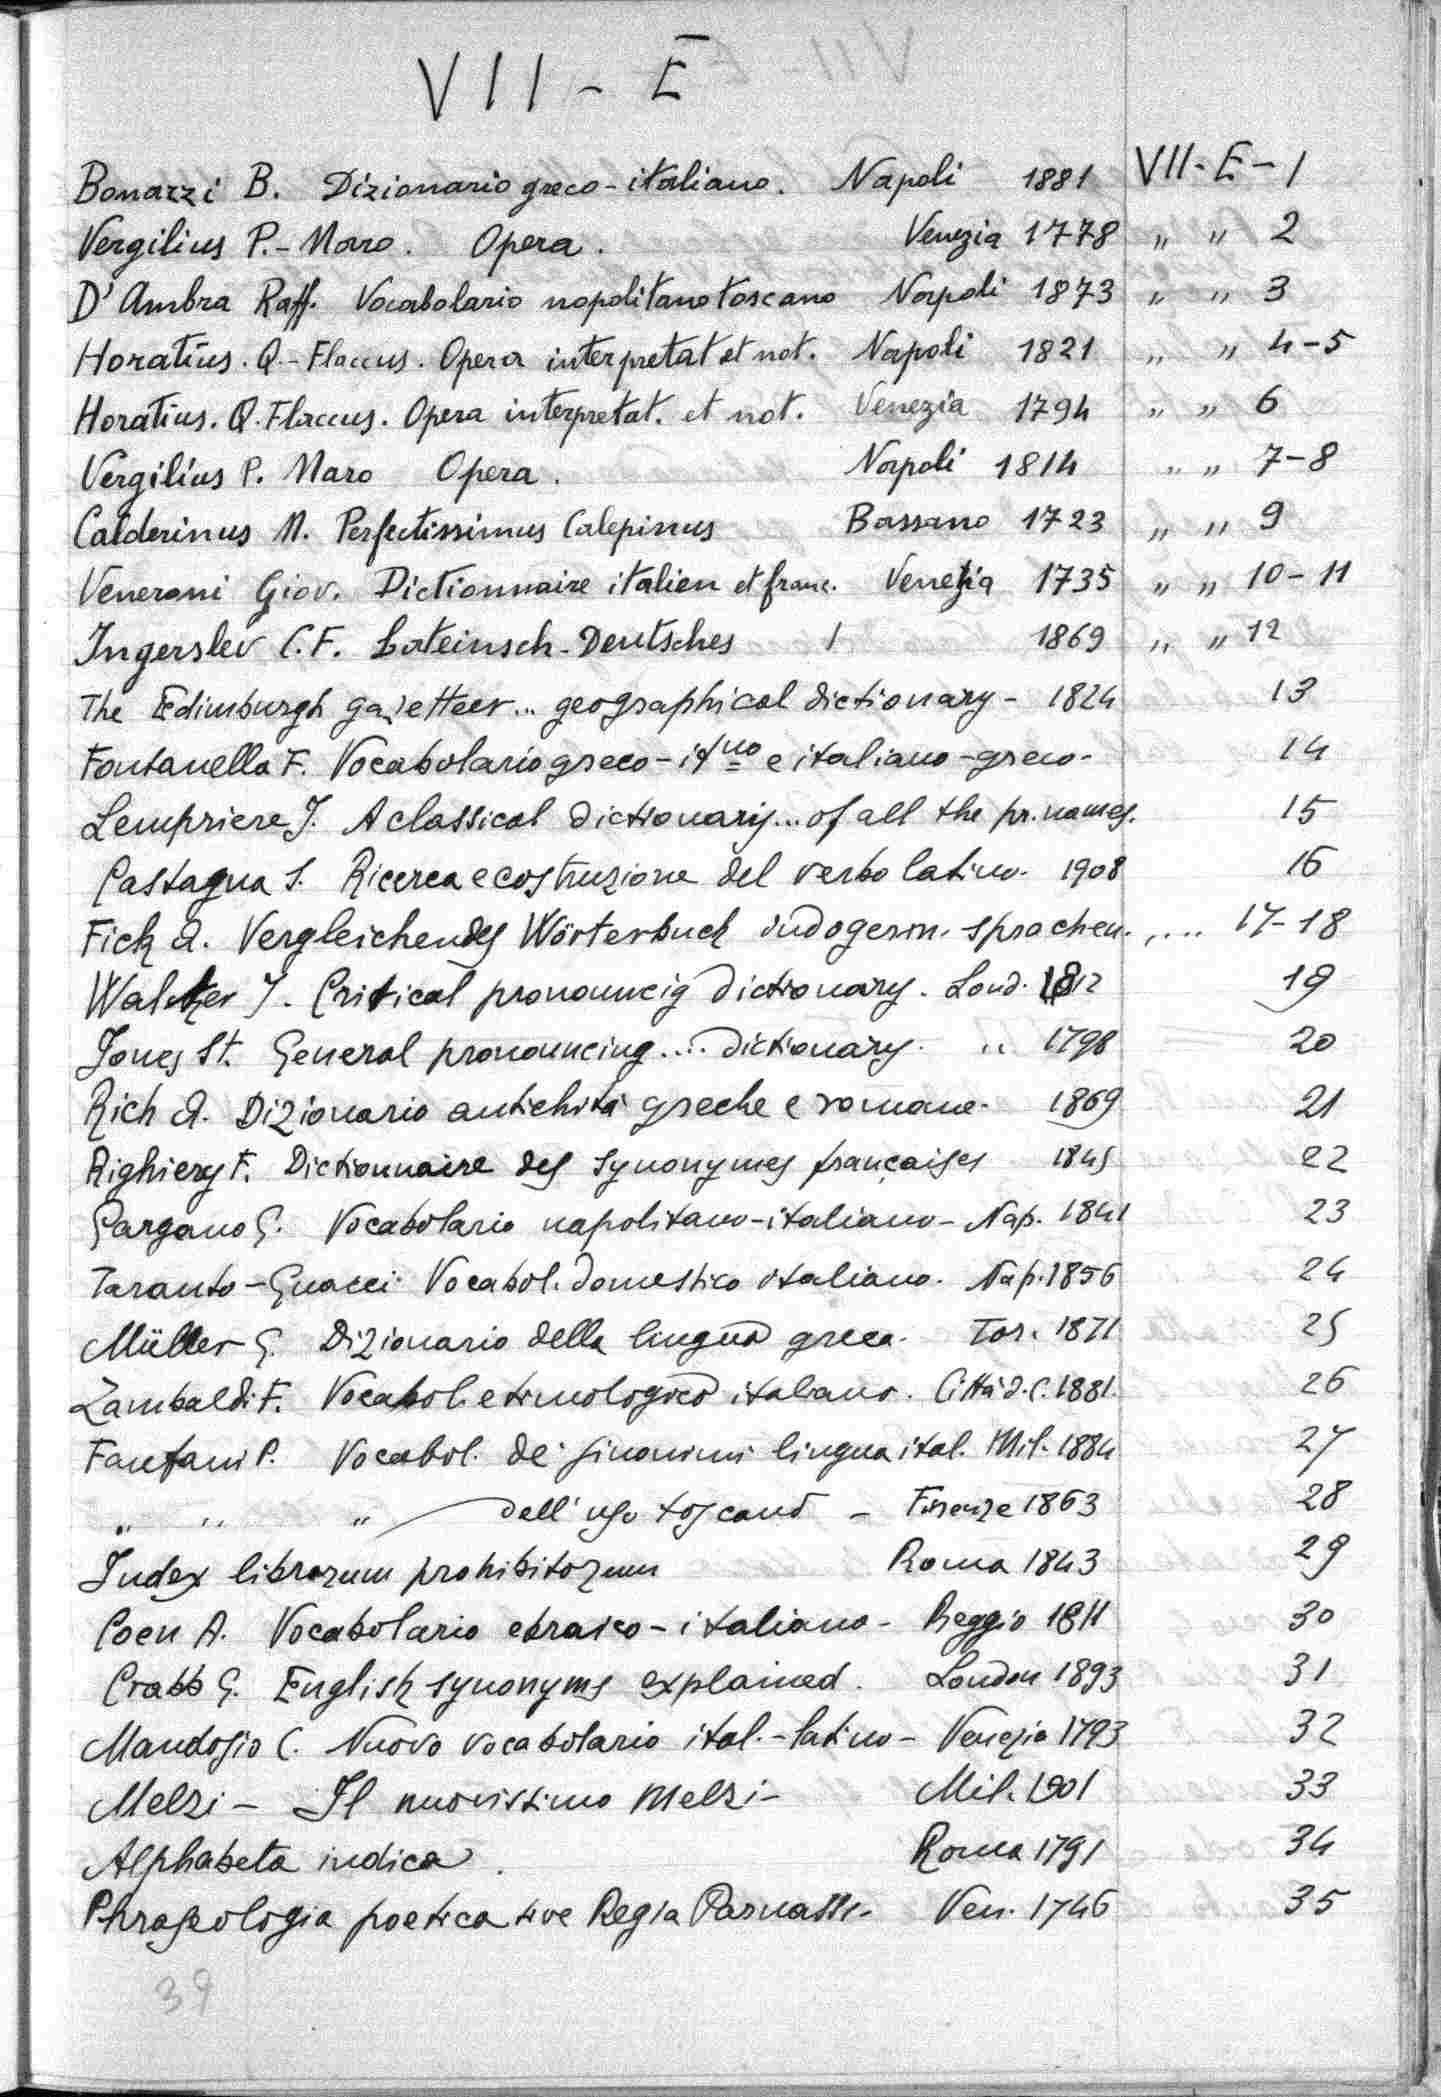 VII - E
Bonazzi B. Dizionario greco-italiano. Napoli 1881 VII-E-1
Vergilius P.- Maro. Opera. Venezia 1778 " " 2
D'Ambra Raff. Vocabolario napolitano toscano Napoli 1873 " " 3
Horatius. Q.- Flaccus. Opera interpretat et not. Napoli 1821 " " 4-5
Horatius. Q. Flaccus. Opera interpretat. et not. Venezia 1794 " " 6
Vergilius P. Maro Opera. Napoli 1814 " " 7-8
Calderinus M. Perfectissimus Calepinus Bassano 1723 " " 9
Veneroni Giov. Dictionnaire italien et franc. Venezia 1735 " " 10-11
Ingerslev C.F. Lateinsch-Deutsches / 1869 " " 12
The Edimburgh gazetteer... geographical dictionary - 1824 13
Fontanella F. Vocabolario greco-itno e italiano-greco- 14
Lempriere J. A classical dictionary... of all the pr. names. 15
Castagna S. Ricerca e costruzione del verbo latino. 1908 16
Fick A. Vergleichendes Wörterbuch indogerm. sprachen. .... 17-18
Walker J. Critical pronouncig dictionary. Lond. 1812 19
Jones St. General pronouncing .... dictionary. " 1798 20
Rich A. Dizionario antichità greche e romane. 1869 21
Righiery F. Dictionnaire des synonymes françaises 1845 22
Gargano G. Vocabolario napolitano-italiano- Nap. 1841 23
Taranto-Guacci Vocabol. domestico italiano. Nap. 1856 24
Müller G. Dizionario della lingua greca. Tor. 1871 25
Zambaldi F. Vocabol. etimologico italiano. Città d.C. 1881. 26
Fanfani P. Vocabol. de' sinonimi lingua ital. Mil. 1884 27
" " " dell' uso toscano - Firenze 1863 28
Index librorum prohibitorum Roma 1843 29
Coen A. Vocabolario ebraico-italiano- Reggio 1811 30
Crabb G. English synonyms explained. London 1893 31
Mandosio C. Nuovo vocabolario ital.-latino- Venezia 1793 32
Melzi - Il nuovissimo Melzi- Mil. 1901 33
Alphabeta indica. Roma 1791 34
Phraseologia poetica sive Regia Parnassi- Ven. 1746 35
39